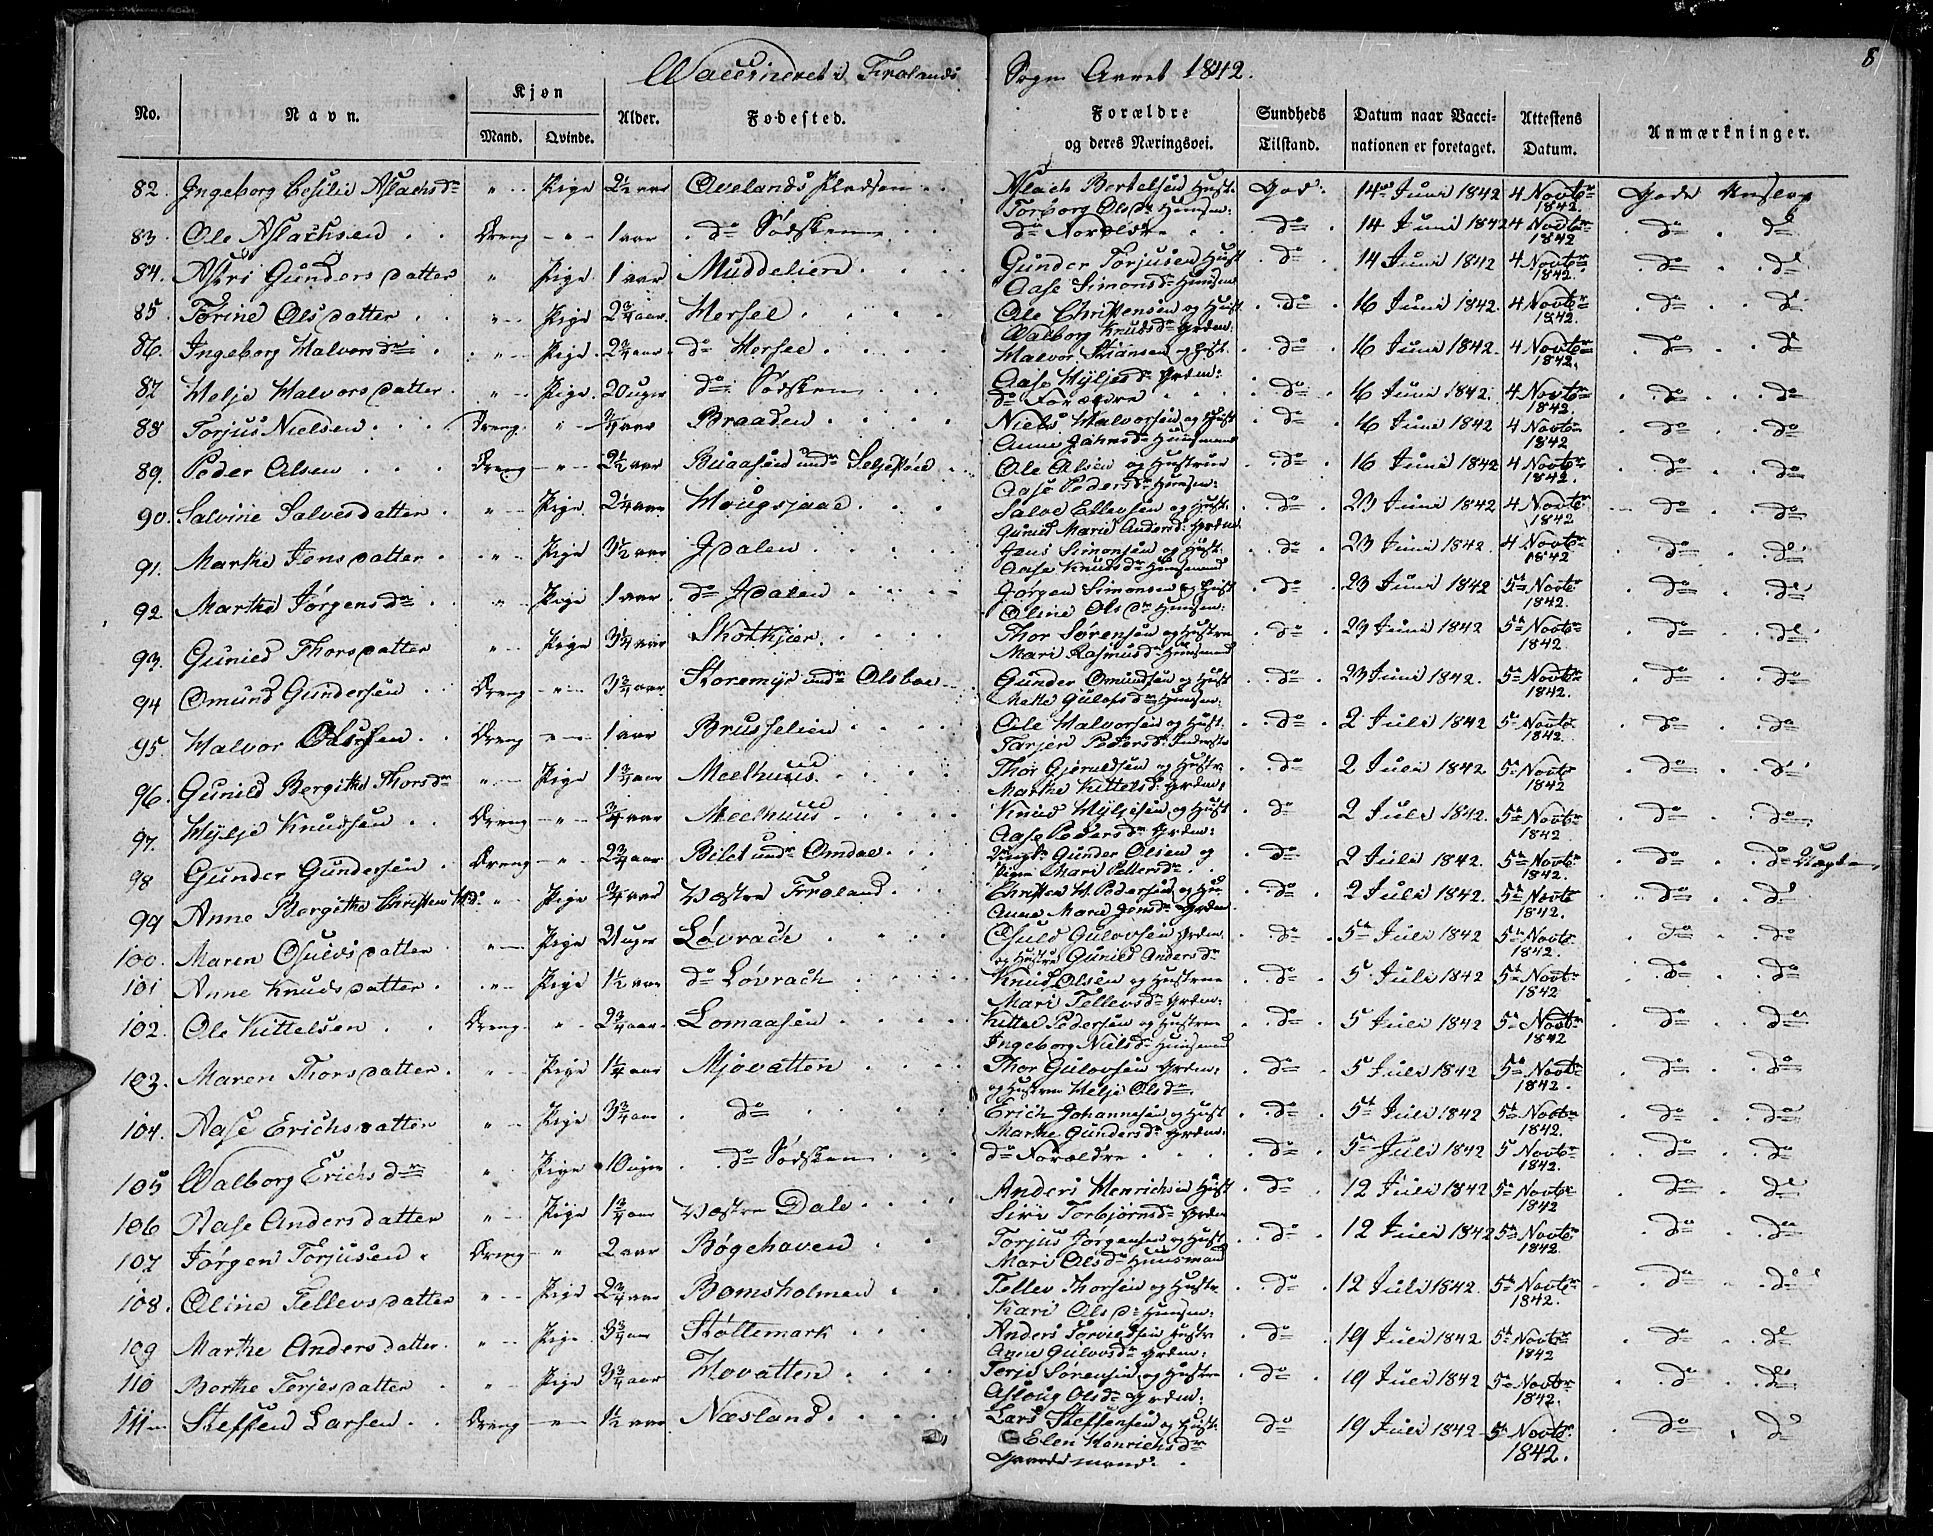 Waccineret i Frolands Sogn Aaret 1842.
8
No. Navn. Kjøn Alder. Fødested. Forældre og deres Næringsvei. Sundheds Tilstand. Datum naar Vaccinationen er foretaget. Attestens Datum. Anmærkninger.
Mand. Qvinde.
82. Ingeborg Cesilie Aslachsdr " Pige 2½ aar Ovelands Pladsen Aslach Bertelsen Hust. Torborg Olsdr Huusm: God 14de Juni 1842 4 Novbr 1842. Gode
83. Ole Aslachsen Dreng " 1 aar do Sødsken do Forældre do 14 Juni 1842 4 Novbr 1842 do do
84. Astri Gundersdatter " Pige 1 aar Muddelien Gunder Torjusen Hust Aase Simonsdr Huusm do 14 Juni 1842 4 Novbr 1842. do do
85. Torine Olsdatter " Pige 2¾ aar Herfel Ole Christensen og Hust Walborg Knudsdr Grdm: do 16 Juni 1842. 4 Novbr 1842. do do
86. Ingeborg Halvorsdr " Pige 2¾ aar do Halvor og Hust Aase Hyljesdr Grdm: do 16 Juni 1842. 4 Novbr 1842. do do
87 Helje Halvorsdatter " Pige 20 uger do Sødsken do Forældre do 16 Juni 1842. 4 Novbr 1842. do do
88 Torjus Nielsen Dreng " ¾ aar Braaden Niels Halvorsen og Hust Anne Jahnsdr Huusmand do 16 Juni 1842 4 Novbr 1842 do do
89. Peder Olsen Dreng " 2½ aar undr Ole Olsen og Hustrue Aase Pedersdr Huusm: do 16 Juni 1842 4 Novbr 1842. do do
90. Salvine Salvesdatter " Pige 2¼ aar Hougsjaae Salve Ellevsen og Hust. Gunild Marie Andersdr Grdm do 23 Juni 1842. 4 Novbr 1842 do do
91. Marthe Jensdatter " Pige 3½ aar Jdalen Jens Simonsen og Hust. Aase Knudsdr Huusmand do 23 Juni 1842. 4 Novbr 1842 do do
92 Marthe Jørgensdr " Pige 1 aar do Jdalen Jørgen Simonsen og Hust Oline Olsdr Huusm: do 23 Juni 1842 5te Novbr 1842. do do
93. Gunild Thorsdatter " Pige 3¼ aar Skotkjær Thor Sørensen og Hustrue Mari Rasmusdr Huusmand do 23 Juni 1842 5te Novbr 1842. do do
94 Omund Gundersen Dreng " 3¾ aar Storemyr undr Olsboe Gunder Omundsen og Hust Mette Gulofsdr Huusm: do 23 Juni 1842. 5te Novbr 1842. do do
95. Halvor Olsen Dreng " 1 aar Brusselien Ole Halvorsen og Hust. Tarjer Pedersdr do 2 Juli 1842 5te Novbr 1842. do do
96. Gunild Bergithe Thorsdr " Pige 1¾ aar Meelhuus Thor Gjeruldsen og Hustr Marthe Kittelsdr Grdm: do 2 Juli 1842 5te Novbr 1842 do do
97. Hylje Knudsen Dreng " ¾ aar Meelhuus Knud Hyljesen og Hust Aase Pedersdr Grdm: do 2 Juli 1842. 5te Novbr 1842 do do
98 Gunder Gundersen Dreng " 2¾ aar Bilet undr Omdal Ungk. Gunder Olsen og Pigen Mari Pettersdr do 2 Juli 1842. 5te Novbr 1842. do do
99 Anne Bergithe Christens Hd. " Pige ¾ aar Vestre Froland Christen H. Pedersen og Hu Anne Marie Jensdr Grdm do 2 Juli 1842 5te Novbr 1842. do do
100. Maren Osuldsdatter " Pige 21 uger Løvrade Osuld Gulovsen Grdm. og Hustru Gunild Andersdr do 5te Juli 1842 5te Novbr 1842. do do
101 Anne Knudsdatter " Pige 1½ aar do Løvrach Knud Olsen og Hustrue Mari Tellevsdr Grdm: do 5 Juli 1842 5te Novbr 1842 do do
102. Ole Kittelsen Dreng " 2¾ aar Lomaasen Kittel Pedersen og Hustrue Ingeborg Nielsdr Huusmand do 5 Juli 1842 5te Novbr 1842 do do
103. Maren Thorsdatter " Pige 1¼ aar Mjovatten Thor Gulovsen Grdm: og Hustrue Helje Olsdr do 5 Juli 1842 5te Novbr 1842. do do
104. Aase Erichsdatter " Pige 3¾ aar do Erich Johannesen og Hust Marthe Gundersdr Grdm: do 5te Juli 1842 5te Novbr 1842. do do
105 Walborg Erichsdr " Pige 10 uger do Sødsken do Forældre do 5te Juli 1842 5 Novbr 1842. do do
106 Aase Andersdatter " Pige 1¾ aar Vestre Dale Anders Henrichsen Hust Siri Torbjørnsdr Grdm do 12 Juli 1842 5te Novbr 1842 do do
107 Jørgen Torjusen Dreng " 2 aar Bøgehaven Torjus Jørgensen og Hust Mari Olsdr Huusmand do 12 Juli 1842 5te Novbr 1842. do do
108. Oline Tellevsdatter " Pige 2¾ aar Bomsholmen Tellev Thorsen og Hustr Kari Olsdr Huusm: do 12 Juli 1842. 5te Novbr 1842. do do
109 Marthe Andersdatter " Pige 3¾ aar Støllemark Anders Hustr Anne Gulovsdr Grdm: do 19 Juli 1842. 5te Novbr 1842 do do
110 Berthe Terjesdatter " Pige 3¾ aar Hovatten Terje Sørensen og Hustru Aslaug Olsdr Grdm: do 19 Juli 1842 5te Novbr 1842. do do
111 Steffen Larsen Dreng " 1½ aar Næsland Lars Steffensen og Hust. Elen Henrichsdr Gaardmand. do 19 Juli 1842 5te Novbr 1842. do do